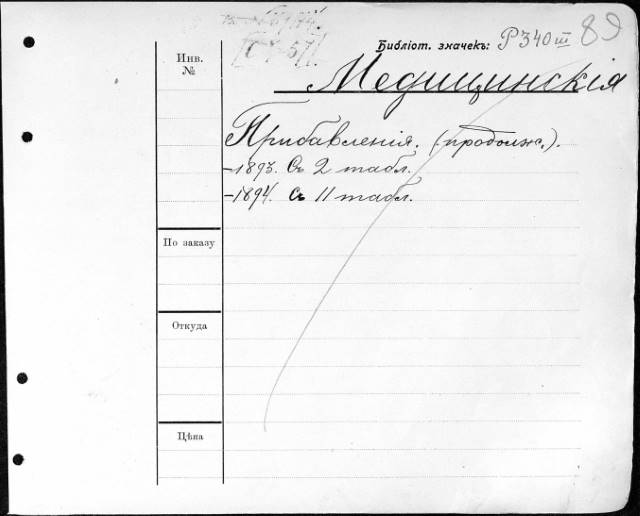 Библіот. значекъ: P340 III 89
Инв.
№
Медицинскія
Прибавленія. (продолж.).
-1893. Съ 2 табл.
-1894. Съ 11 табл.
По заказу
Откуда
Цѣна